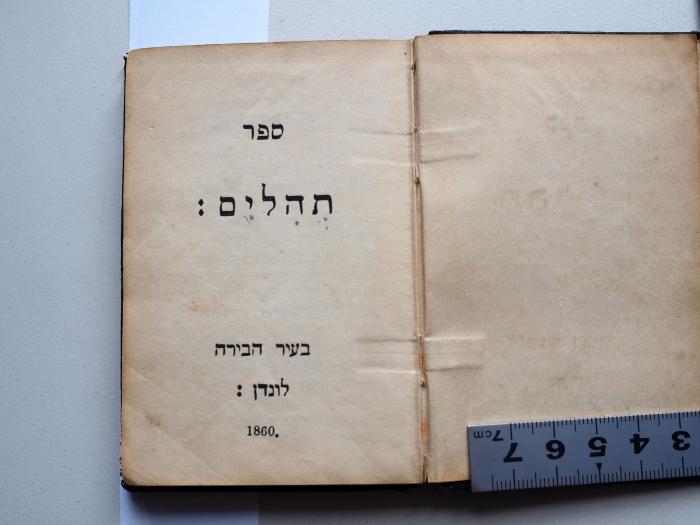 ספר
תְהִלִים :
בעיר הבירה
לונדן :
1860.
7cm
7 6 5 4 3